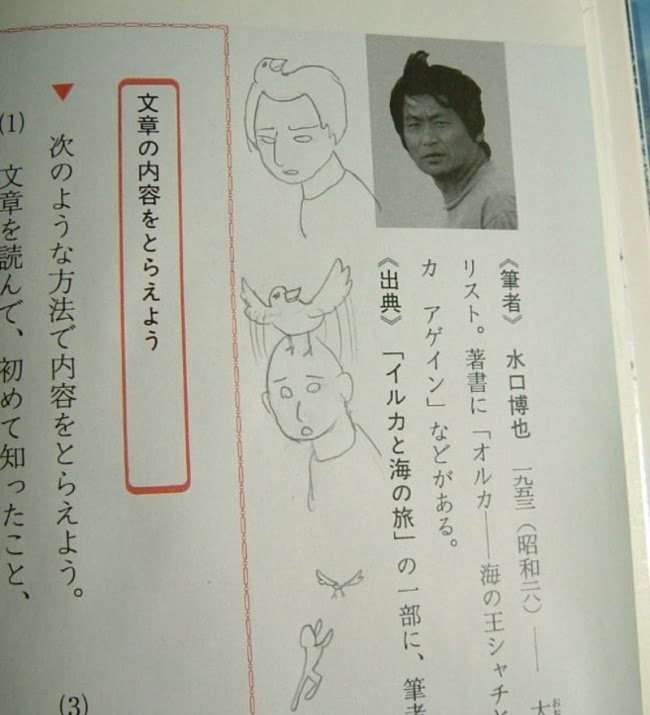 《筆者》 水口博也 一九五三（昭和二八）―― 大
リスト。著書に「オルカ――海の王シャチと
カ アゲイン」などがある。
《出典》 「イルカと海の旅」の一部に、筆者
文章の内容をとらえよう
▼ 次のような方法で内容をとらえよう。
(1) 文章を読んで、初めて知ったこと、
(3)